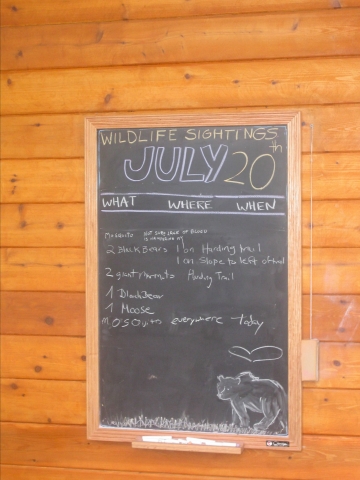 WILDLIFE SIGHTINGS
JULY 20th
WHAT WHERE WHEN
Mosquito NOT SURE
2 Black Bears 1 on Harding trail
1 on Slope to left of trail
2 Harding Trail
1 Black Bear
1 Moose
mOSQuitos everywhere today